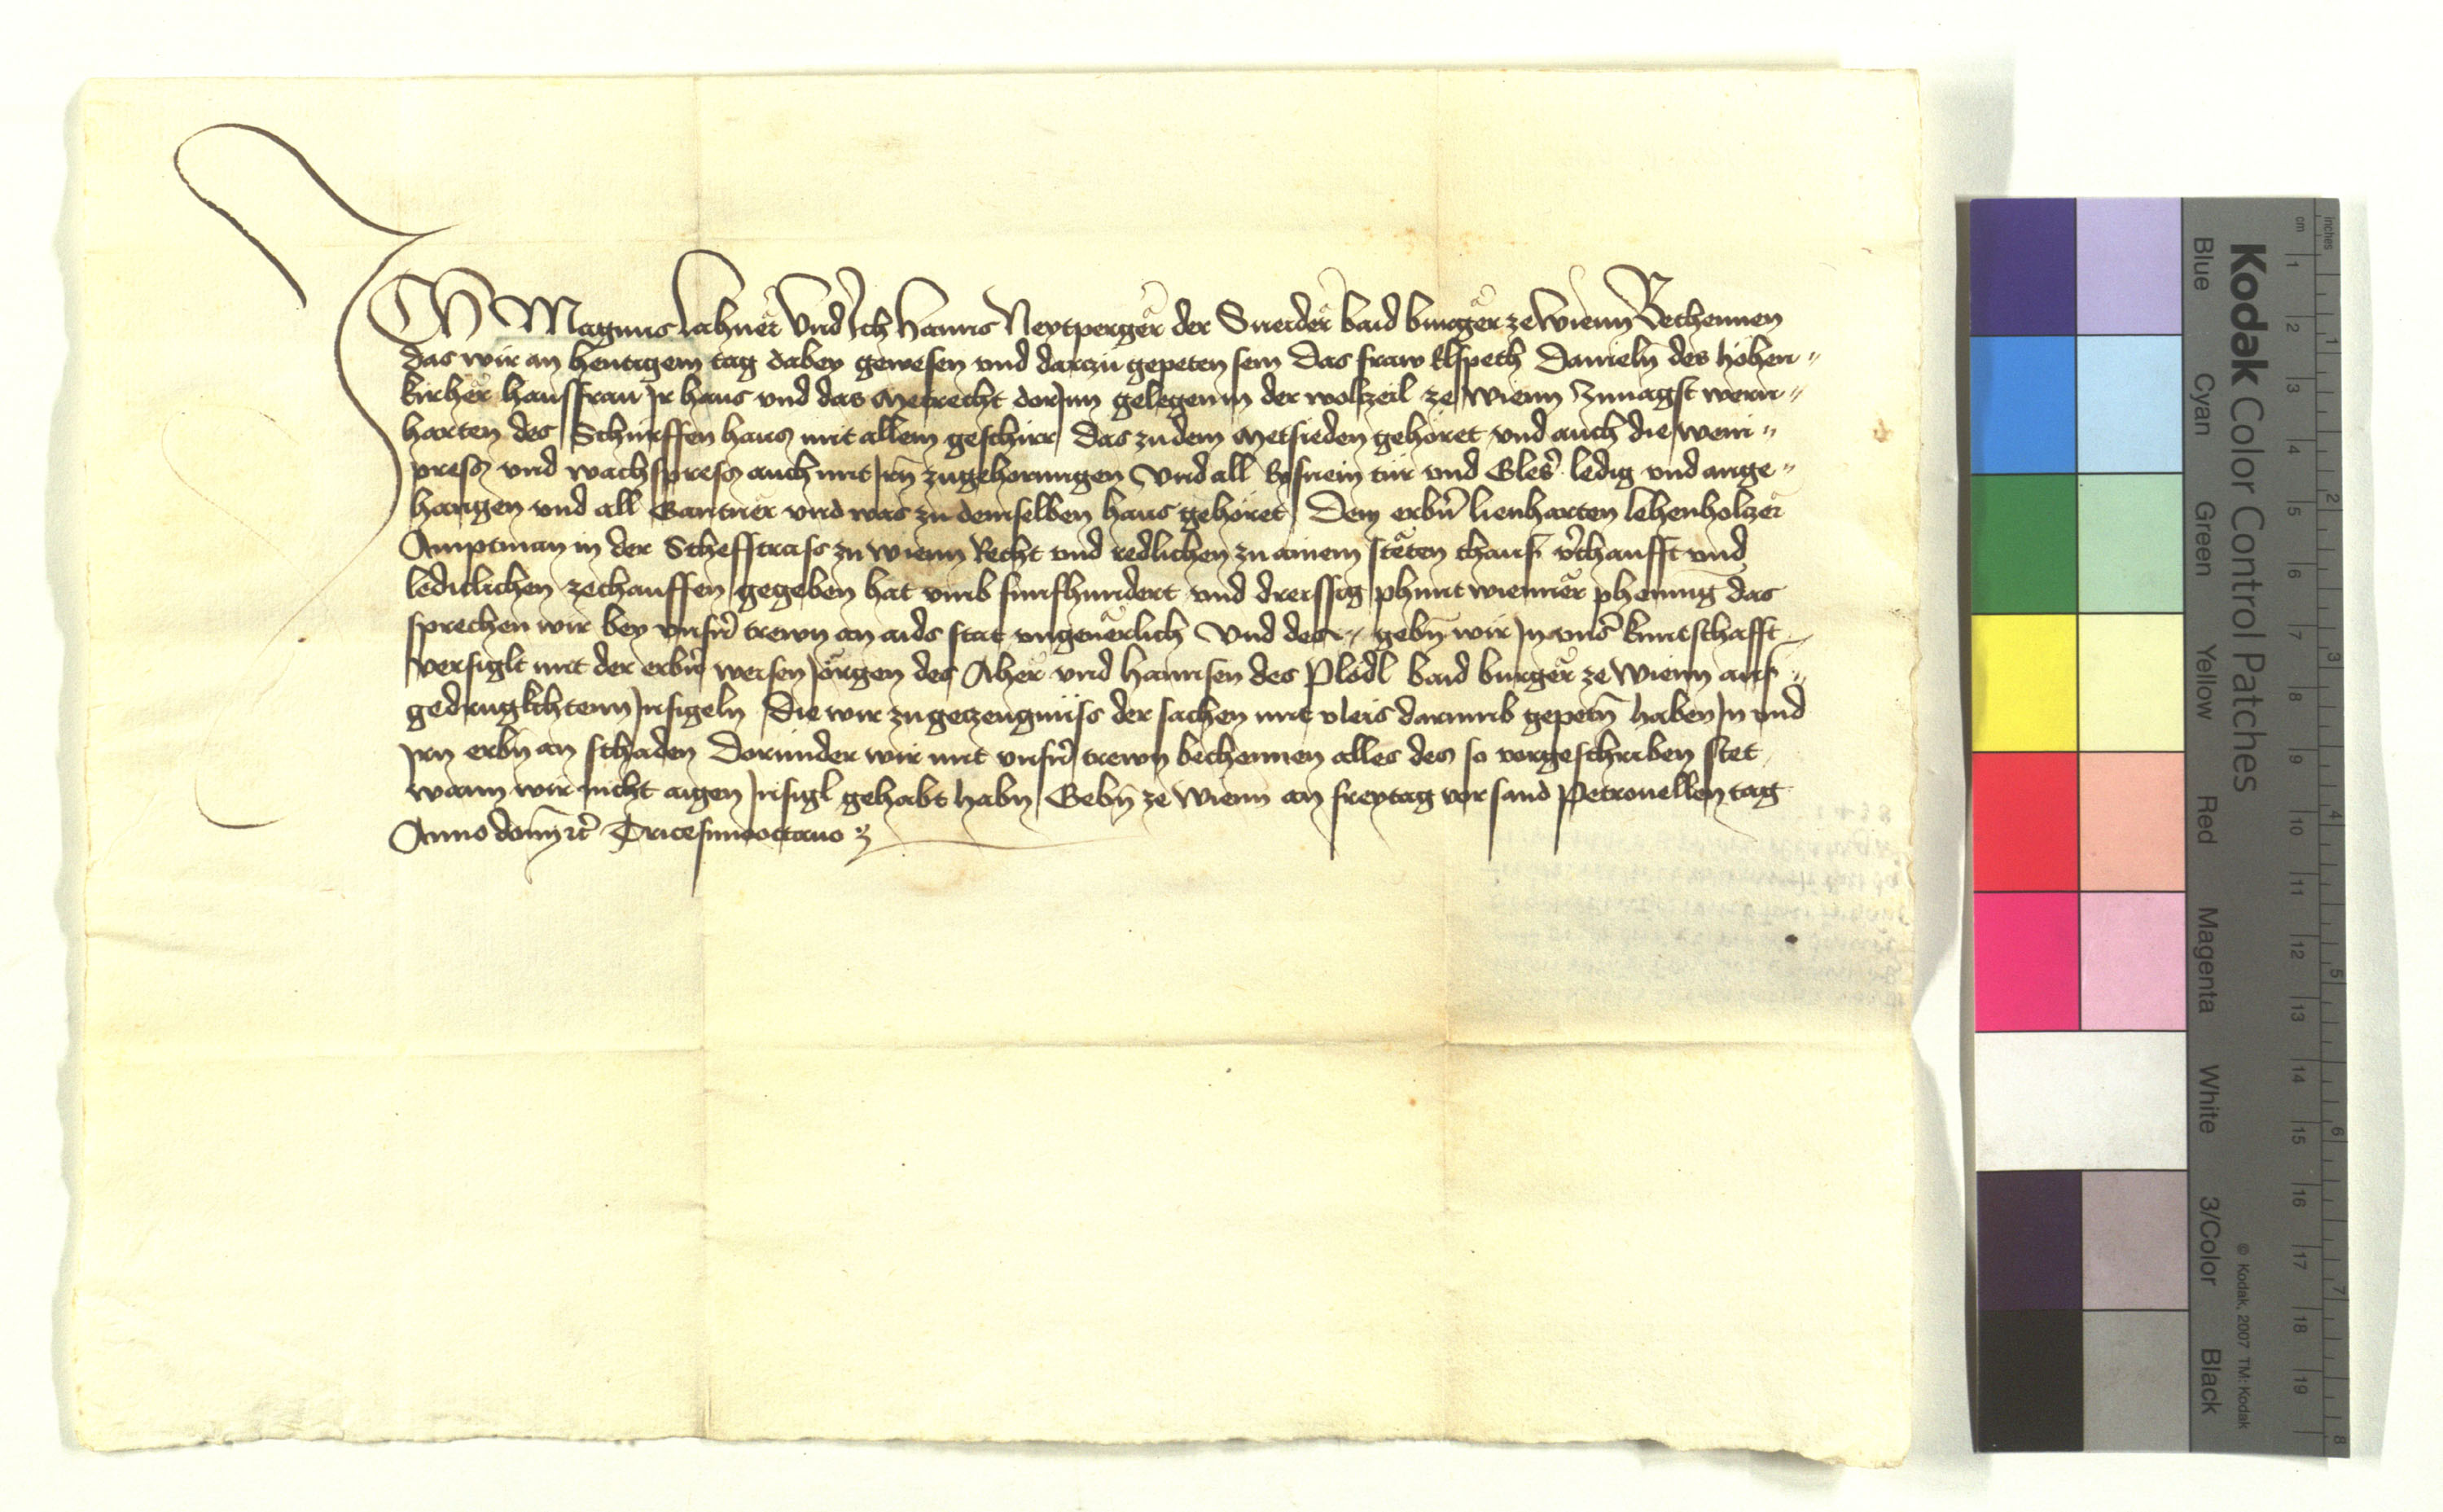 ICh Magnus lahnër Vnd Ich Hanns Neytpergër der Sneidër baid burgër ze Wienn Bechennen
das wir an heutigem tag dabey gewesen vnd darczu gepeten sein Das fraw Elspeth Danieln des höhen〃
kircher hausfrau Ir haus vnd das Metrecht dorInn gelegen in der wolczeil ze Wienn Znnagst wern〃
harten des Schürffen haus mit allem geschirr Das zu dem Metsieden gehöret vnd auch die wein〃
press vnd wachspress auch mit Irn̄ zugehorungen Vnd all Eysnein tür vnd Gles̉ ledig vnd ange〃
hangen vnd all Gantnër vnd was zu demselben haus gehöret Dem erbn̉ lienharten lehenholczer
Amptman in der Scheffstrass zu Wienn Recht vnd redlichen zu ainem stëten chauff v̉chaufft vnd
lediclichen ze chauffen gegeben hat vmb funfhundert vnd dreissig phunt wiennër phenning das
sprechen wir bey vnsrn̉ trewn an aids stat vngeuërlich Vnd des〃 gebn̄ wir In vns̉ kuntschafft
versiglt mit der erbn̉ weisen Jörgen des Aher vnd Hannsen des Plödl baid burgër ze Wienn auf〃
gedrugkchtenn Insigeln Die wir zu geczeugnüss der sachen mit vleis darumb gepetn̄ haben In vnd
Irn erbn̄ an schaden Dorunder wir mit vnsrn̉ trewn bechennen alles des so vorgeschriben stet
wann wir nicht aigen Insigl gehabt habn Gebn̄ ze Wienn an freytag vor sand Petronellen tag
Anno domī ꝛc̉ Tricesimooctauo
Kodak Color Control Patches
Blue Cyan Green Yellow Red Magenta White 3/Color Black
© Kodak, 2007 TM: Kodak
inches 1 2 3 4 5 6 7 8
cm 1 2 3 4 5 6 7 8 9 10 11 12 13 14 15 16 17 18 19